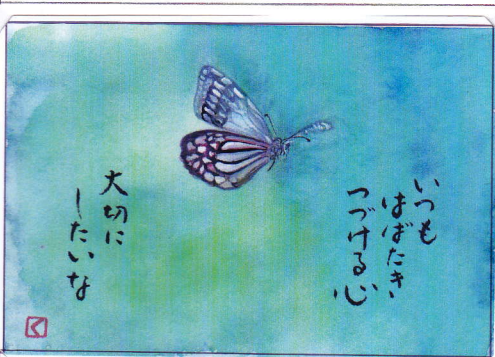 いつも
はばたき
つづける心
大切に
したいな
く